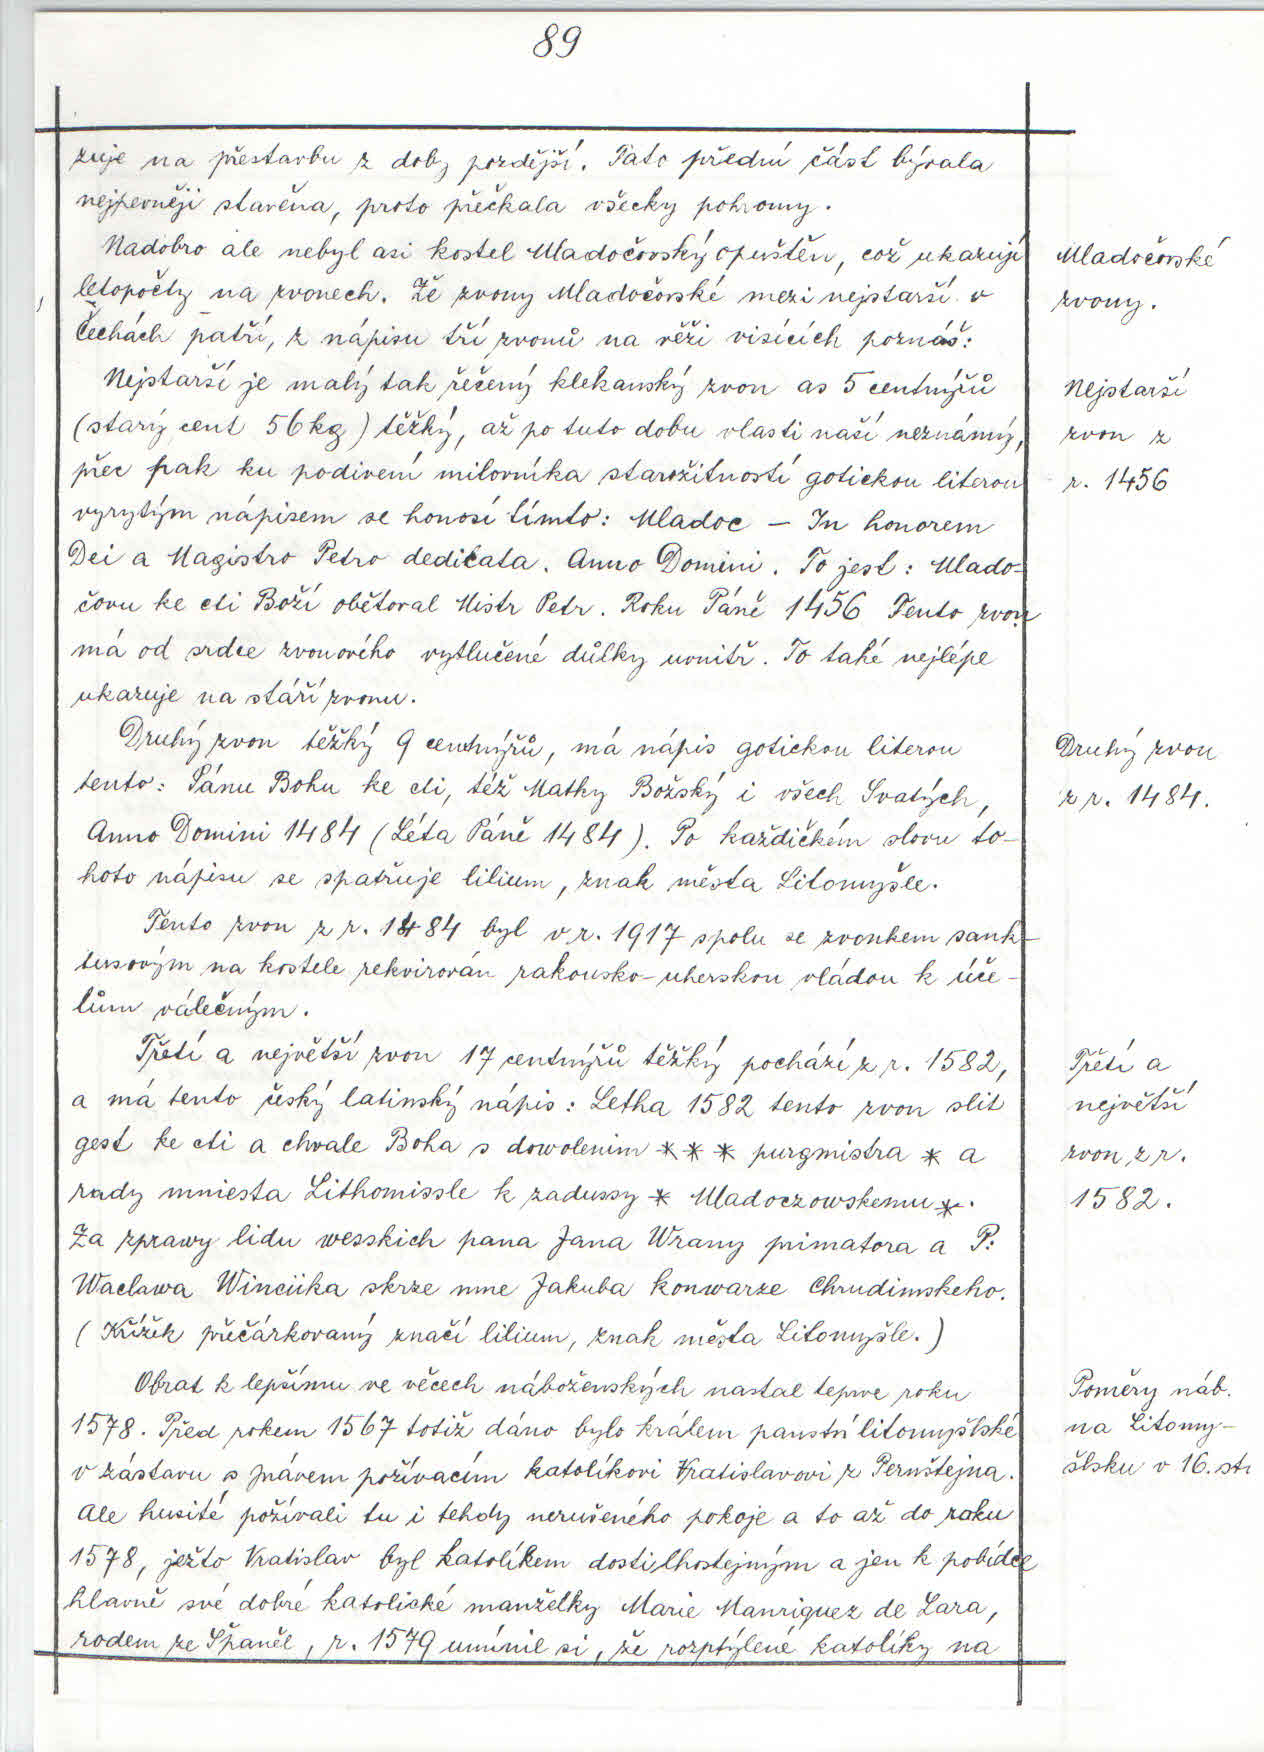 89
zuje na přestavbu z doby pozdější. Tato přední část bývala
nejpevněji stavěna, proto přečkala všecky pohromy.
Nadobro ale nebyl asi kostel Mladočovský opuštěn, což ukazují
letopočty na zvonech. Že zvony Mladočovské mezi nejstarší v
Čechách patří, z nápisu tří zvonů na věži visících poznáš:
Mladočovské
zvony.
Nejstarší je malý tak řečený klekanský zvon as 5 centnýřů
(starý cent 56 kg) těžký, až po tuto dobu vlasti naší neznámý,
přec pak ku podivení milovníka starožitností gotickou literou
vyrytým nápisem se honosí tímto: Mladoc – In honorem
Dei a Magistro Petro dedicata. Anno Domini. To jest: Mlado-
čovu ke cti Boží obětoval Mistr Petr. Roku Páně 1456 Tento zvon
má od srdce zvonového vytlučené důlky uvnitř. To také nejlépe
ukazuje na stáří zvonu.
Nejstarší
zvon z
r. 1456
Druhý zvon těžký 9 centnýřů, má nápis gotickou literou
tento: Pánu Bohu ke cti, též Matky Božský i všech Svatých,
Anno Domini 1484 (Léta Páně 1484). Po každičkém slovu to-
hoto nápisu se spatřuje lilium, znak města Litomyšle.
Druhý zvon
z r. 1484.
Tento zvon z r. 1484 byl v r. 1917 spolu se zvonkem sank-
tusovým na kostele rekvirován rakousko-uherskou vládou k úče-
lům válečným.
Třetí a největší zvon 17 centnýřů těžký pochází z r. 1582,
a má tento český latinský nápis: Letha 1582 tento zvon slit
gest ke cti a chwale Boha s dowolenim * * * purgmistra * a
rady mniesta Lithomissle k zadussy * Mladoczowskemu *.
Za zprawy lidu wesskich pana Jana Wrany primatora a P:
Waclawa Winciika skrze mne Jakuba konwarze Chrudimskeho.
(Křížek přečárkovaný značí lilium, znak města Litomyšle.)
Třetí a
největší
zvon z r.
1582.
Obrat k lepšímu ve věcech náboženských nastal teprve roku
1578. Před rokem 1567 totiž dáno bylo králem panství litomyšlské
v zástavu s právem požívacím katolíkovi Vratislavovi z Pernštejna.
Ale husité požívali tu i tehdy nerušeného pokoje a to až do roku
1578, ježto Vratislav byl katolíkem dosti lhostejným a jen k pobídce
hlavně své dobré katolické manželky Marie Manriquez de Lara,
rodem ze Španěl, r. 1579 umínil si, že rozptýlené katolíky na
Poměry náb.
na Litomy-
šlsku v 16. st.